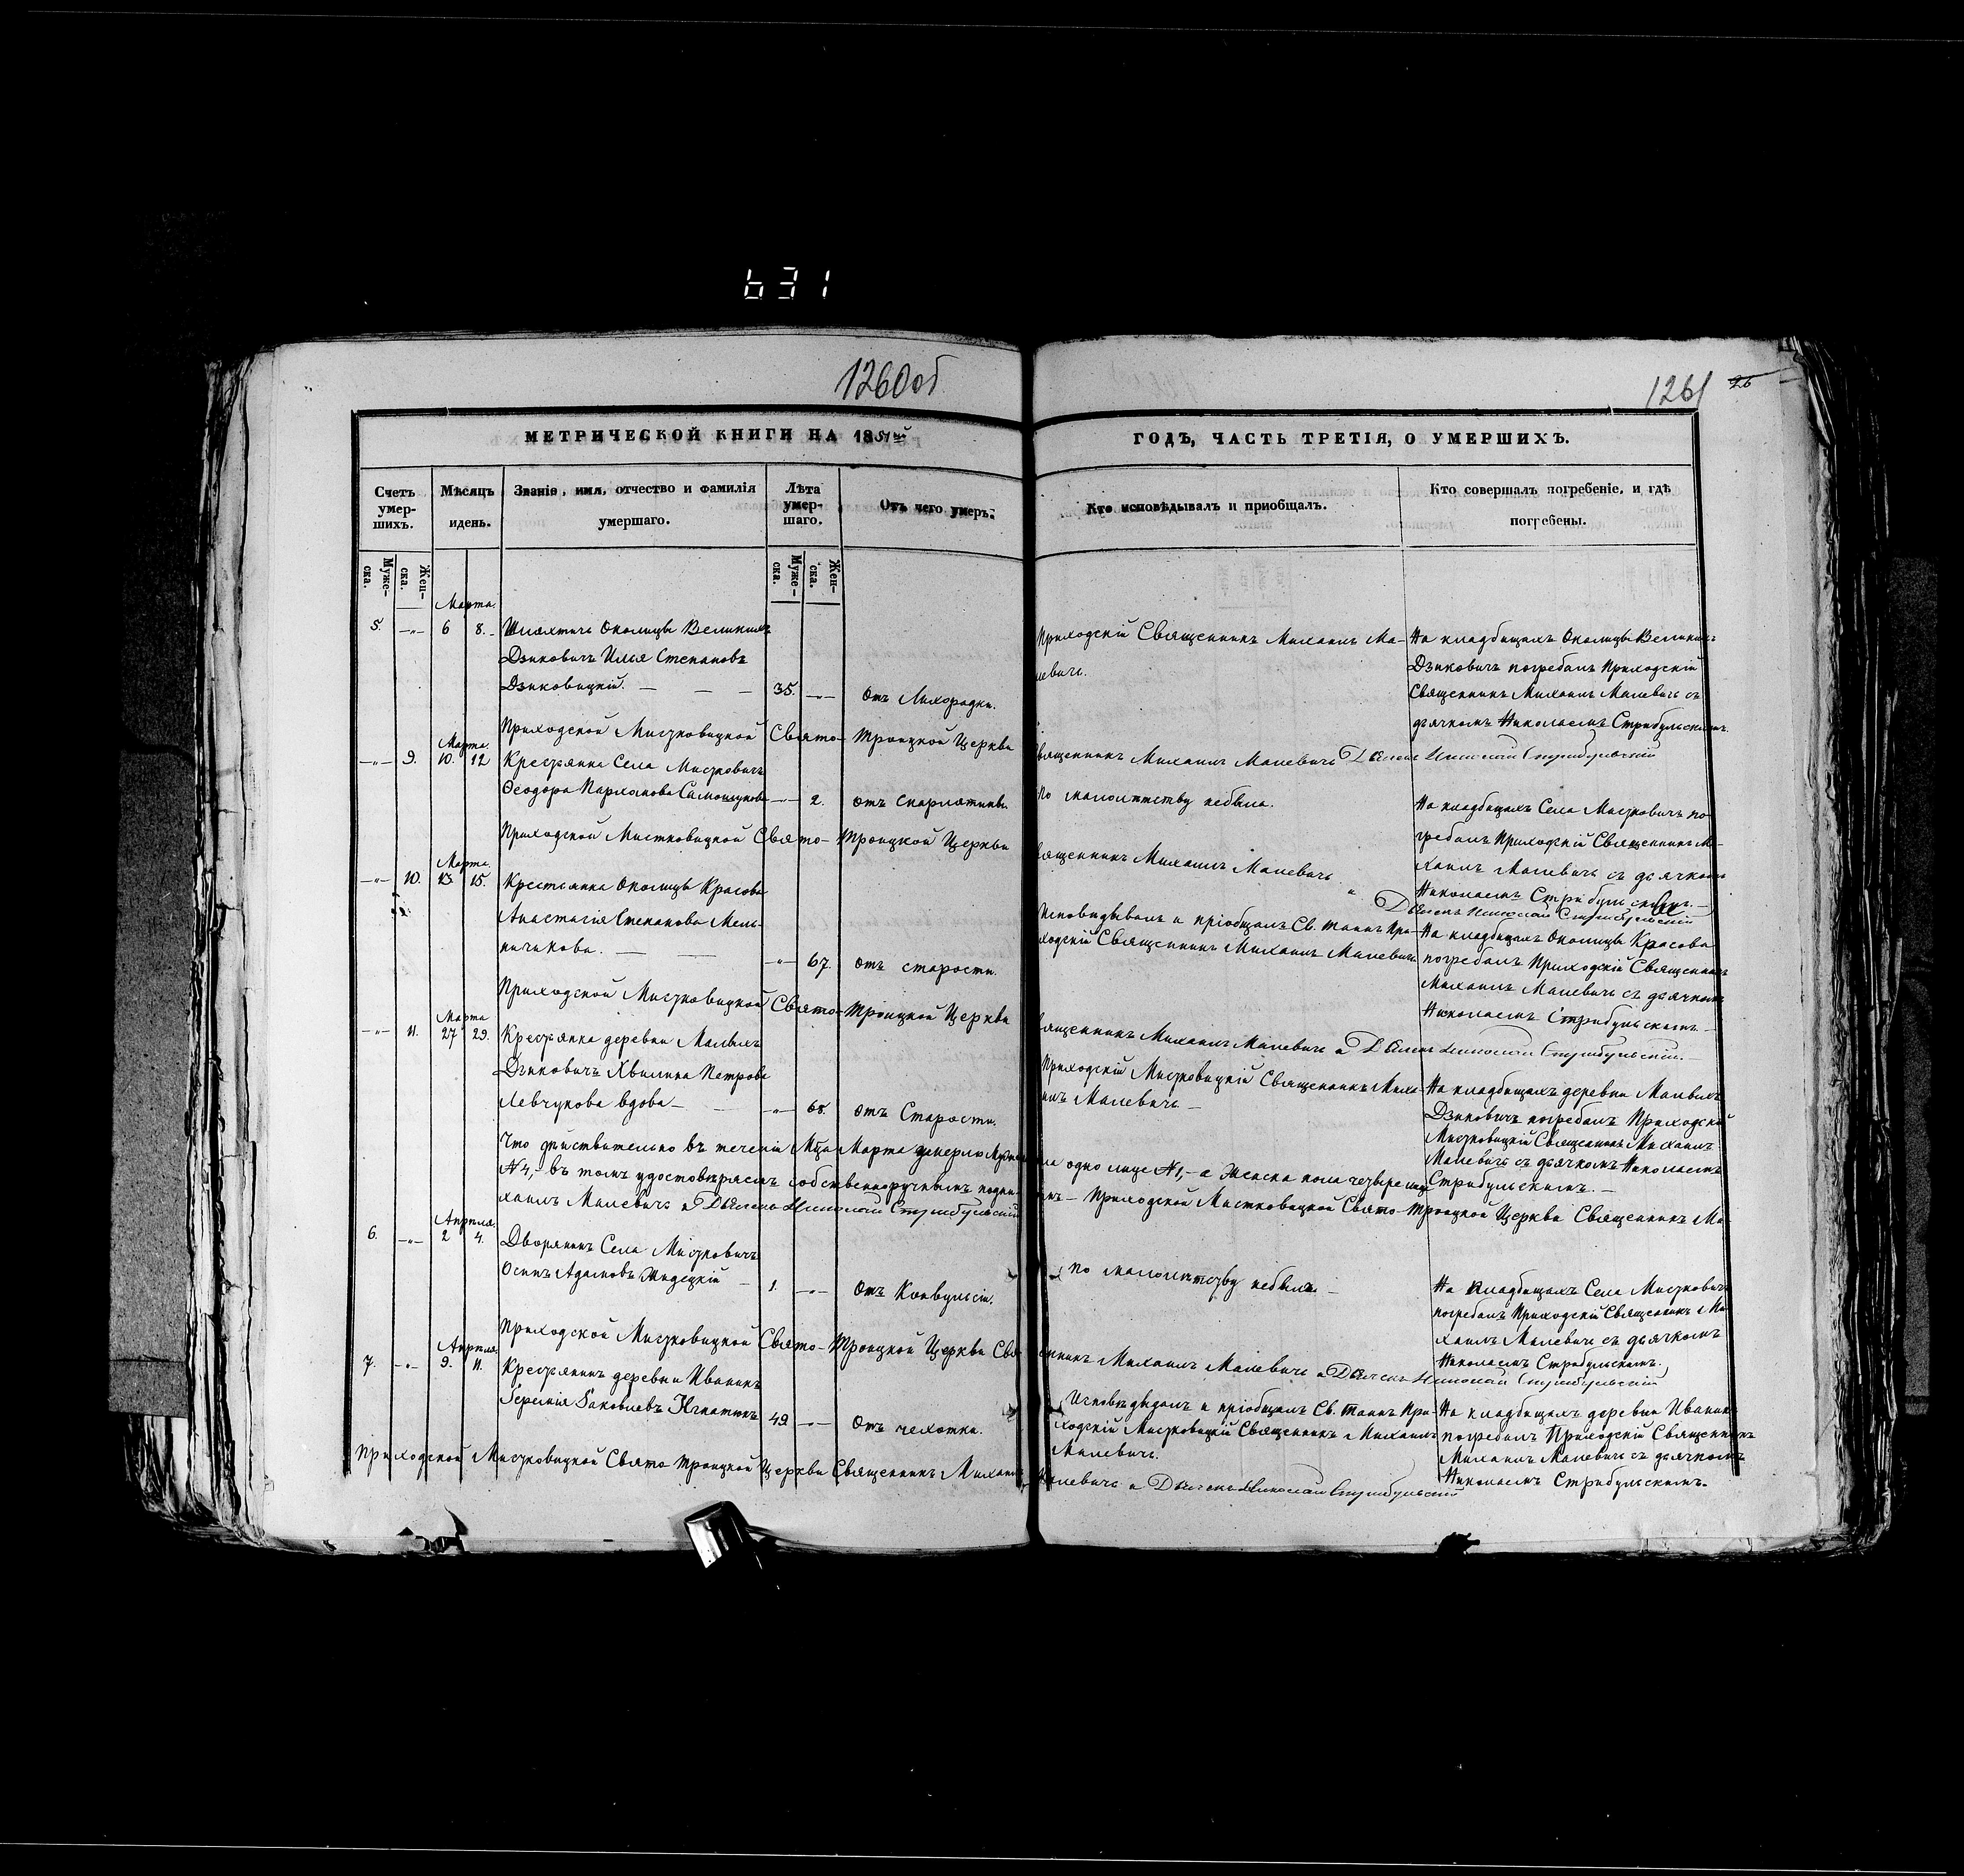 631
1260об
1261 26
МЕТРИЧЕСКОЙ КНИГИ НА 1851й
ГОДЪ, ЧАСТЬ ТРЕТІЯ, О УМЕРШИХЪ.
Счетъ умер-шихъ.
Мѣсяцъ идень.
Званіе, имя, отчество и фамилія умершаго.
Лѣта умер-шаго.
Отъ чего умеръ.
Кто исповѣдывалъ и приобщалъ.
Кто совершалъ погребеніе, и гдѣ погребены.
Муже-ска.
Жен-ска.
Муже-ска.
Жен-ска.
Марта.
5. —„— 6 8.
Шляхтичъ Околицы Великихъ
Дзиковичъ Илья Степановъ
Дзиковицкій. — — — 35. —„— Отъ Лихорадки.
Приходскій Священникъ Михаилъ Ма-
левичь.
На кладбищахъ Околицы Великихъ
Дзиковичъ погребалъ Приходскій
Священникъ Михаилъ Малевичь съ
дьячкомъ Николаемъ Стрибульскимъ.
Приходской Мистковицкой Свято-Троицкой Церкви
Священникъ Михаилъ Малевичь Дьячекъ Николай Стрибульскій
Марта.
—„— 9. 10. 12
Крестьянка Села Мистковичъ
Ѳеодора Парѳенова Самошукова —„— 2. отъ скарлатины.
По малолѣтству небыла.
На кладбищахъ Села Мистковичъ по
гребалъ Приходскій Священникъ М-
хаилъ Малевичь съ дьячкомъ
Николаемъ Стрибульскимъ. —
Приходской Мистковицкой Свято-Троицкой Церкви
Священникъ Михаилъ Малевичь и
Дьячекъ Николай Стрибульскій
Марта.
—„— 10. 13. 15.
Крестьянка Околицы Красова
Анастасія Степанова Мель-
ничикова. — — —„— 67. отъ старости.
Исповидывалъ и пріобщалъ Св. таинъ При-
ходскій Священникъ Михаилъ Малевичь.
На кладбищахъ Околицы Красова
погребалъ Приходскій Священникъ
Михаилъ Малевичь съ дьячкомъ
Николаемъ Стрибульскимъ. —
Приходской Мистковицкой Свято-Троицкой Церкви
Священникъ Михаилъ Малевичь и Дьячекъ Николай Стрибульскій. —
Марта
—„— 11. 27 29.
Крестьянка деревни Малыхъ
Дзиковичъ Хвилина Петрова
Левчукова вдова — —„— 68. отъ Старости.
Приходскій Мистковицкій Священникъ Миха-
илъ Малевичь. —
На кладбищахъ деревни Малыхъ
Дзиковичъ погребалъ Приходскій
Мистковицкій Священникъ Михаилъ
Малевичь съ дьячкомъ Николаемъ
Стрибульскимъ. —
Что дѣйствительно въ теченіи Мца Марта
одно лице №1, — а Женска пола четыре
№4, — въ томъ удостовѣряемъ собственноручнымъ
Приходской Мистковицкой Свято-Троицкой Церкви Священникъ Ми-
хаилъ Малевичь и Дьячекъ Николай Стрибульскій
Апрѣля.
6. —„— 2 4.
Дворянинъ Села Мистковичъ
Осипъ Адамовъ Жидецкій — 1. —„— Отъ Конвульсіи.
По малолѣтству небылъ. —
На кладбищахъ Села Мистковичъ
погребалъ Приходскій Священникъ Ми-
хаилъ Малевичь съ дьячкомъ
Николаемъ Стрибульскимъ.
Приходской Мистковицкой Свято-Троицкой Церкви Свя-
щенникъ Михаилъ Малевичь и Дьячекъ Николай Стрибульскій
Апрѣля.
7. —„— 9. 11.
Крестьянинъ деревни Иваникъ
Іеремія Яковлевъ Игнатикъ 49. —„— Отъ чехотки.
Исповѣдыдалъ и пріобщалъ Св. Таинъ При-
ходскій Мистковицкій Священникъ Михаилъ
Малевичь.
На кладбищахъ деревни Иваникъ
погребалъ Приходскій Священникъ
Михаилъ Малевичь съ дьячкомъ
Николаемъ Стрибульскимъ.
Приходской Мистковицкой Свято Троицкой Церкви Священникъ Михаилъ
Малевичь и Дьячекъ Николай Стрибульскій